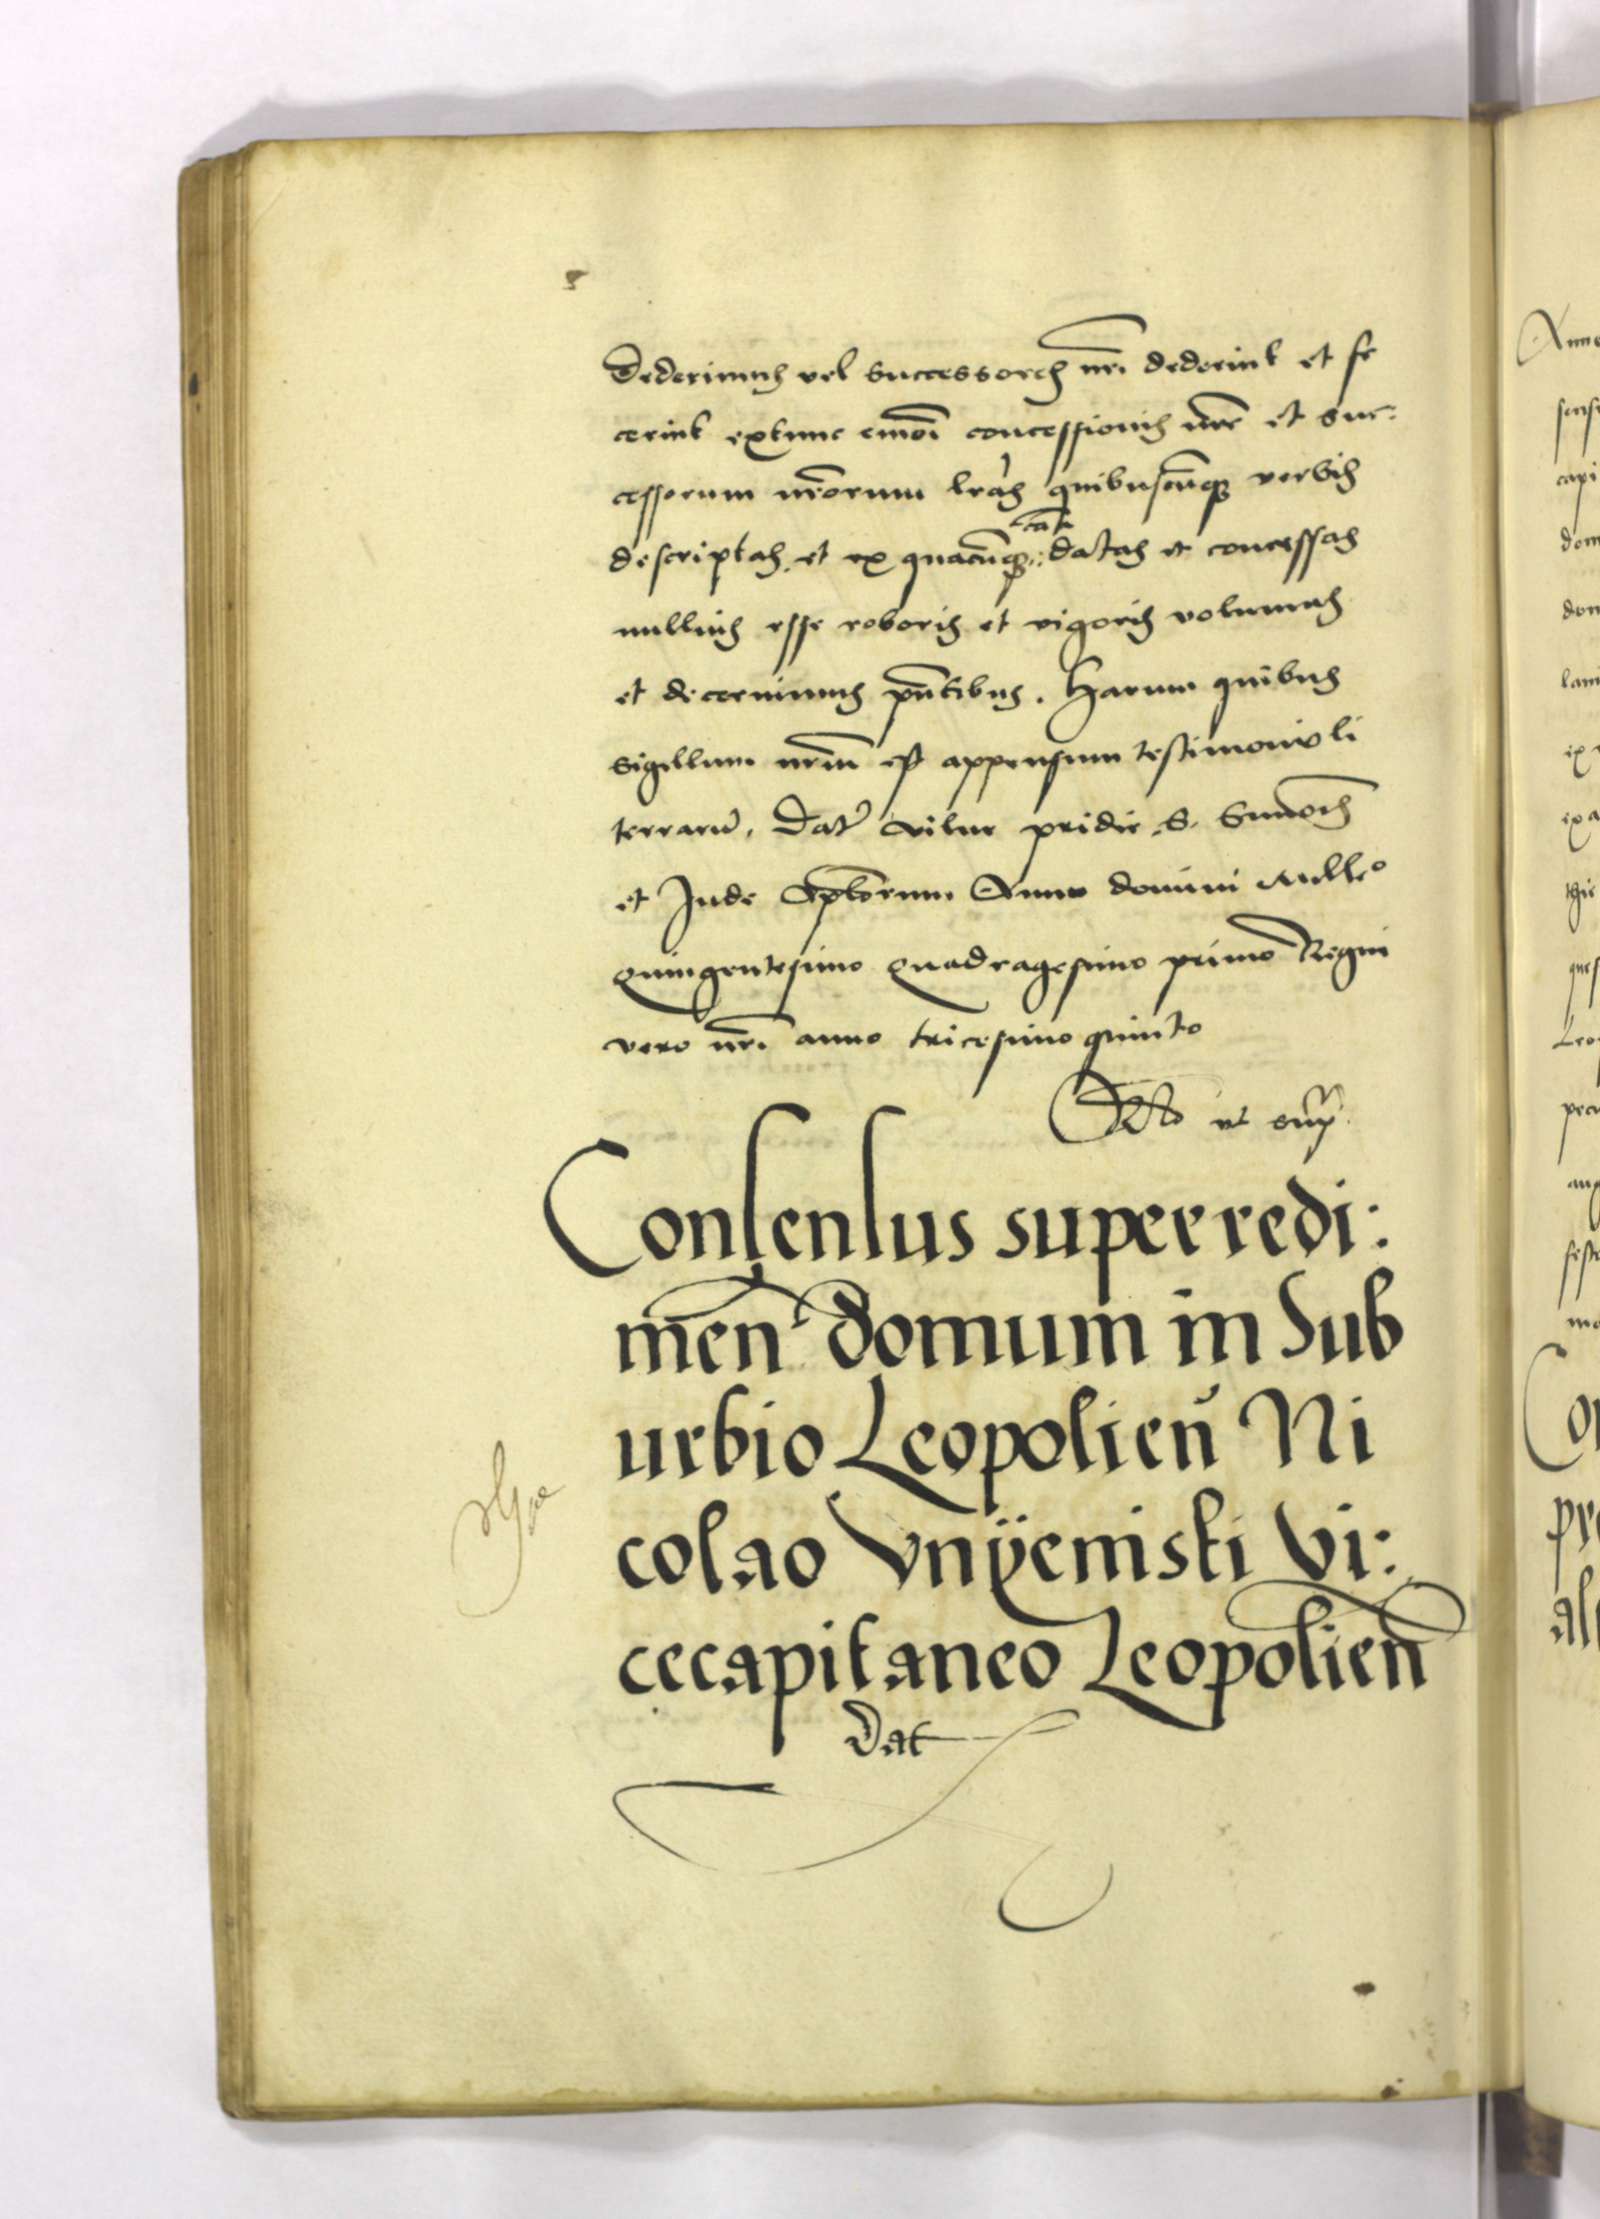 Dederimus vel Successores nr̄i dederint et fe
cerint extunc em̄oi concessionis nr̄e et suc:
cessorum nr̄orum lr̄as quibuscūq3 verbis
descriptas et ex quacūq3 cā datas et concessas
nullius esse roboris et vigoris volumus
et decernimus pn̄tibus. Harum quibus
Sigillum nr̄m est appensum testimonio li
terrarū. Dat Vilne pridie S. Simōis
et Jude Ap̄lorum Anno domini Mill̄o
Quingentesimo Quadragesimo primo Regni
vero nr̄i anno tricesimo quinto
ut sup̄
Consensus super redi:
men̄ domum in Sub
urbio Leopolien̄ Ni
colao Vnÿeniski Vi:
cecapitaneo Leopolien̄
Dat
Anno
capi
dom
Leo